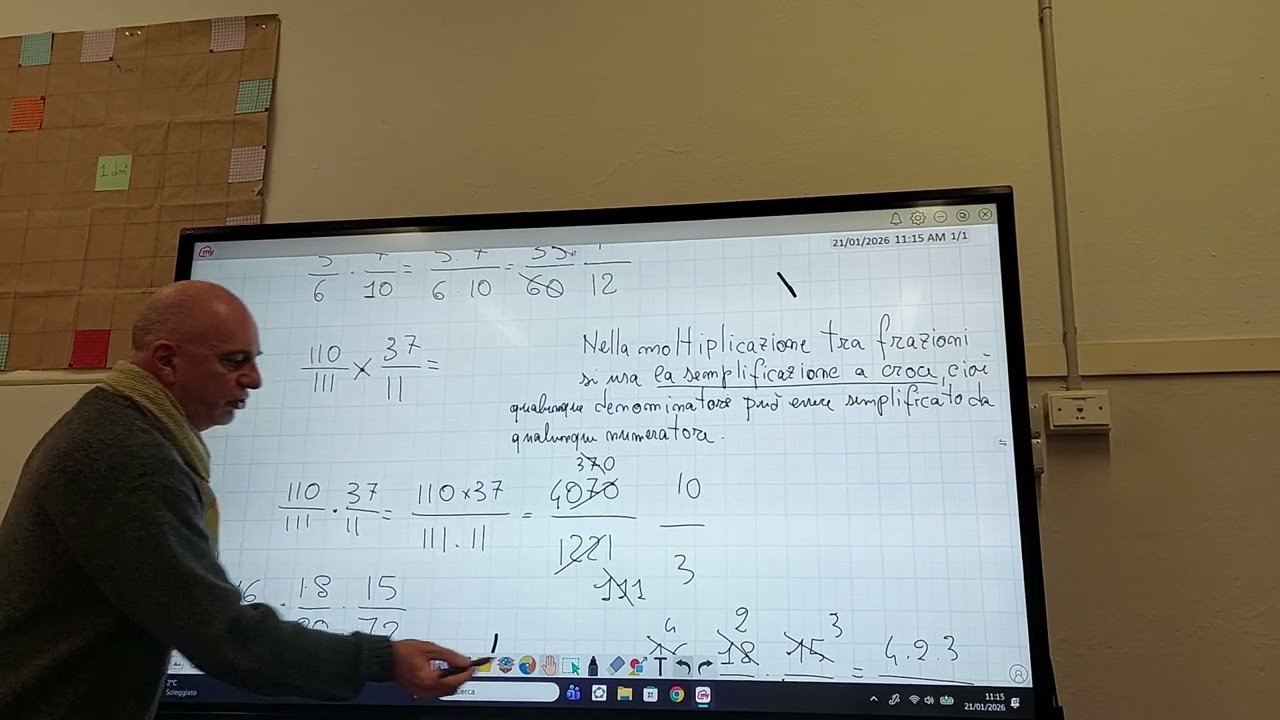 1 dm²
my
21/01/2026 11:15 AM 1/1
6 · 10 = 6 · 10 = 60 12
110/111 × 37/11 =
Nella moltiplicazione tra frazioni
si usa la semplificazione a croce, cioè
qualunque denominatore può essere semplificato da
qualunque numeratore.
370
110/111 · 37/11 = 110×37/111·11 = 4070/1221 10/3
111
16 · 18 · 15
72
4 2 3
18 · 15 = 4.2.3
T
2°C
Soleggiato
cerca
11:15
21/01/2026